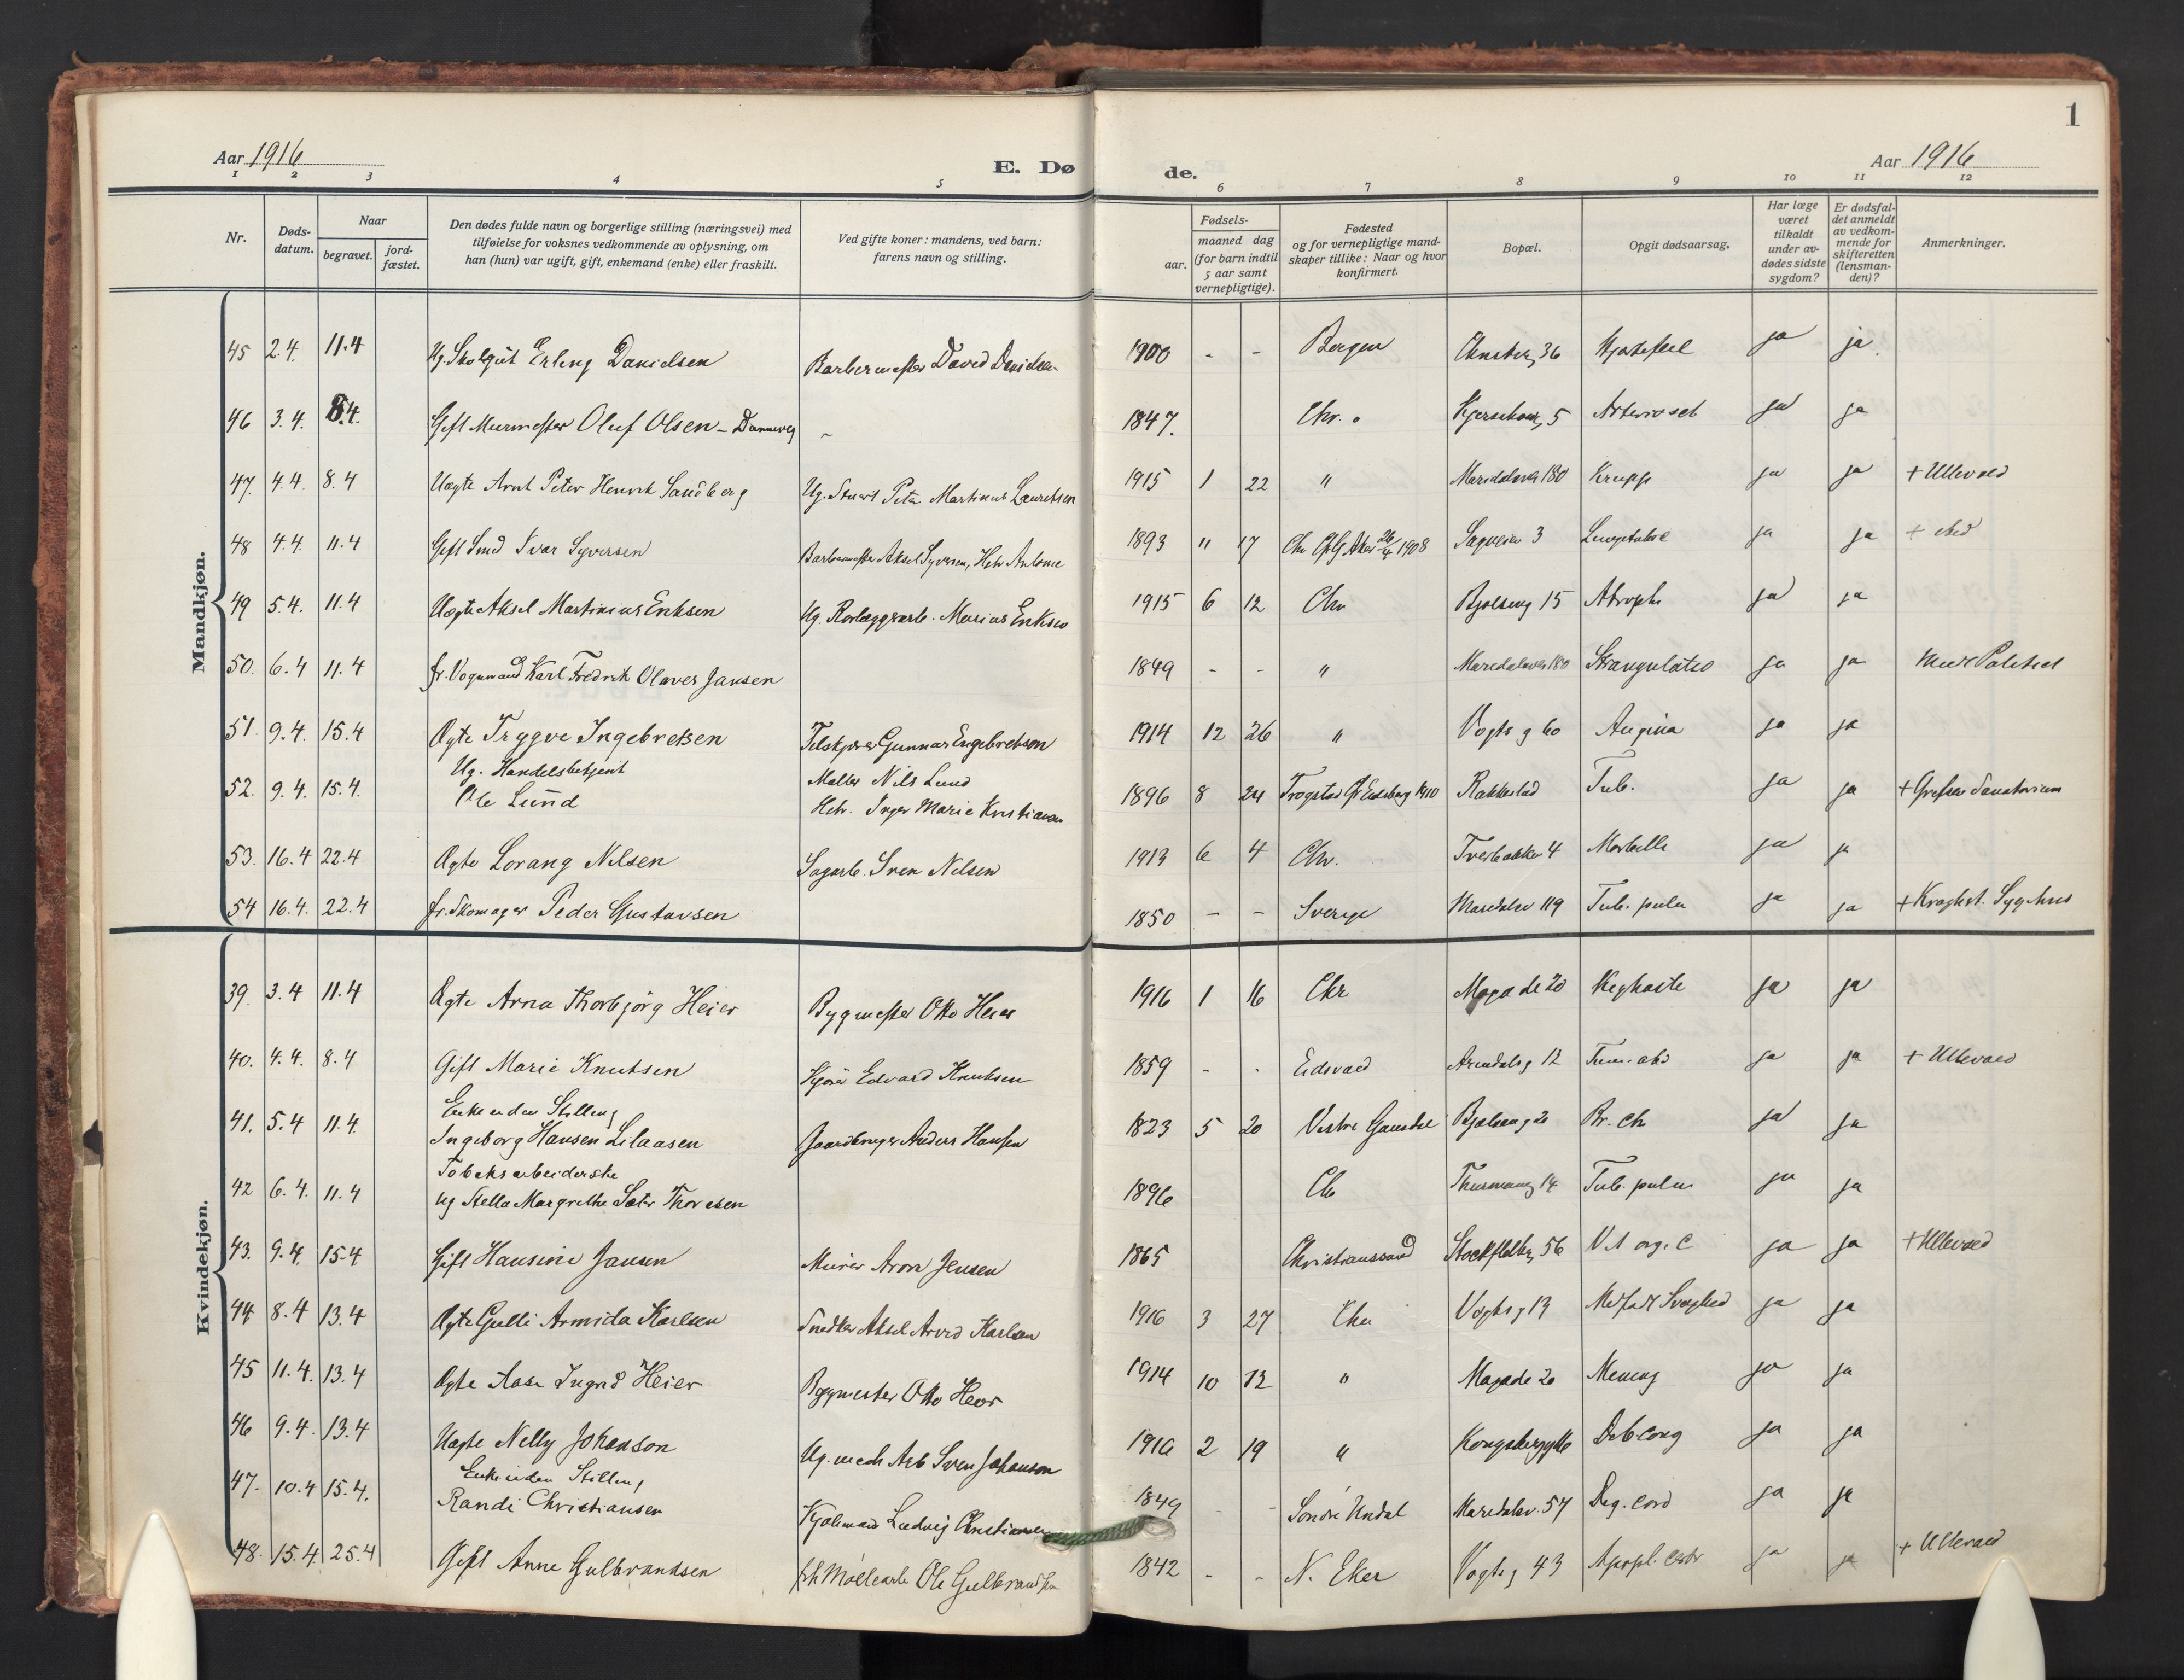 1
Aar 1916
E. Døde.
Aar 1916
1 2 3 4 5 6 7 8 9 10 11 12
Nr.
Døds-
datum.
Naar
begravet.
jord-
fæstet.
Den dødes fulde navn og borgerlige stilling (næringsvei) med
tilføielse for voksnes vedkommende av oplysning, om
han (hun) var ugift, gift, enkemand (enke) eller fraskilt.
Ved gifte koner: mandens, ved barn:
farens navn og stilling.
Fødsels-
aar.
maaned dag
(for barn indtil
5 aar samt
vernepligtige).
Fødested
og for vernepligtige mand-
skaper tillike: Naar og hvor
konfirmert.
Bopæl.
Opgit dødsaarsag.
Har læge
været
tilkaldt
under av-
dødes sidste
sygdom?
Er dødsfal-
det anmeldt
av vedkom-
mende for
skifteretten
(lensman-
den)?
Anmerkninger.
Mandkjøn.
45 2.4. 11.4 Ug. Skolegut Erling Danielsen Barbermester David Danielsen 1900 - - Bergen 36 Hjertefeil ja ja
46 3.4. 8.4. Gift Murmester Oluf Olsen - Dannevig - 1847. Chr. 5 ja ja
47. 4.4. 8.4 Uægte Arnt Peter Henrik Sandberg Ug. Stuert Peter Martinus Lauritsen 1915 1 22 " Maridalsvei 180 Krupp ja ja + Ullevaal
48 4.4. 11.4 Gift Smed Ivar Syversen Barbermester Aksel Syversen, 1893 11 17 Aker 26/4 1908 Sagveien 3 ja ja
49 5.4. 11.4 Uægte Aksel Martinius Eriksen Ug. Rørlæggerarb. Marius Eriksen 1915 6 12 Chr Bjølseng 15 Atrophi ja ja
50. 6.4 11.4 fr. Vognmand Karl Fredrik Olaves Jansen 1849 - - " Maridalsvei 180 Strangulatio ja ja
51. 9.4. 15.4 Ægte Trygve Ingebretsen Gunnar Engebretson 1914 12 26 " Vogts g 60 Angina ja ja
52. 9.4. 15.4. Ug. Handelsbetjent
Ole Lund Maller Nils Lund
Hstr. Inger Marie Kristiansen 1896 8 24 Trøgstad Eidsberg 1910 Rakkestad Tub. ja ja + Grefsen Sanatorium
53. 16.4 22.4 Ægte Lorang Nilsen Sagarb. Sven Nilsen 1913 6 4 Chr. Tverbakken 4 Morbilli ja ja
54 16.4. 22.4 fr. Skomager Peder Gustavsen 1850 - - Sverige Maridalsv 119 Tub. pulm ja ja + Kroghst. Sygehus
Kvindekjøn.
39. 3.4 11.4 Ægte Arna Thorbjörg Heier Bygmester Otto Heier 1916 1 16 Chr Møgade 20 Kighoste ja ja
40. 4.4. 8.4 Gift Marie Knutsen Kjører Edvard Knutsen 1859 - - Eidsvold Arendalsg 12 ja ja + Ullevaal
41. 5.4 11.4. Enke uden Stilling
Ingeborg Hansen Lilaasen Gaardbruger Anders Hansen 1823 5 20 Vestre Gausdal Bjølseng 20 Br. ch ja ja
42 6.4. 11.4 Tobaksarbeiderske
Ug Stella Margrethe Sæter Thoresen 1896 Ch 14 Tub. pulm ja ja
43. 9.4. 15.4 Gift Hansine Jansen Murer Aron Jensen 1865 Christianssand Stockfletsg 56 V. org. C ja ja + Ullevaal
44 8.4 13.4 Ægte Gulli Armida Karlsen Snedker Aksel Arvid Karlsen 1916 3 27 Chr Vogtsg 13 Medfødt Svaghed ja ja
45 11.4. 13.4 Ægte Aase Ingrid Heier Bygmester Otto Heier 1914 10 12 " Møgade 20 Mening ja ja
46 9.4. 13.4 Uægte Nelly Johanson Ug. mech Arb Sven Johanson 1916 2 19 " Deb. cong ja ja
47. 10.4 15.4. Enke uden Stilling
Randi Christiansen Ludvig Christiansen 1849 - - Søndre Undal Maridalsv. 57 Deg. cord ja ja
48. 15.4. 25.4 Gift Anne Gulbrandsen Møllearb Ole Gulbrandsen 1842 - - N. Eker Vogtsg 43 Apopl. cerebr ja ja + Ullevaal